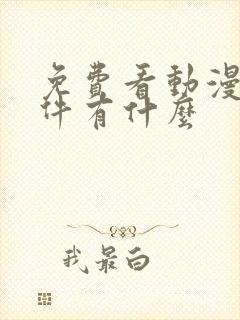 免費看動漫
件有什麼
我最白